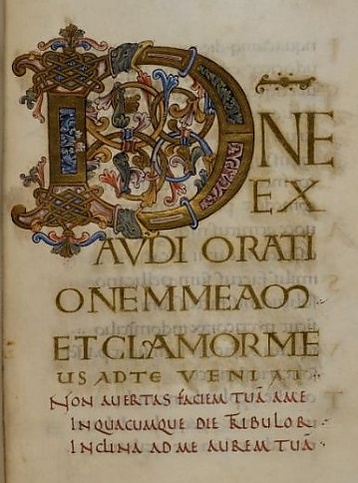 DNE
EX
AVDI ORATI
ONEM MEAM
ET CLAMOR ME
US AD TE VENIAT
NON AUERTAS FACIEM TUĀ A ME
IN QUACUMQUE DIE TRIBULOR
INCLINA AD ME AUREM TUĀ